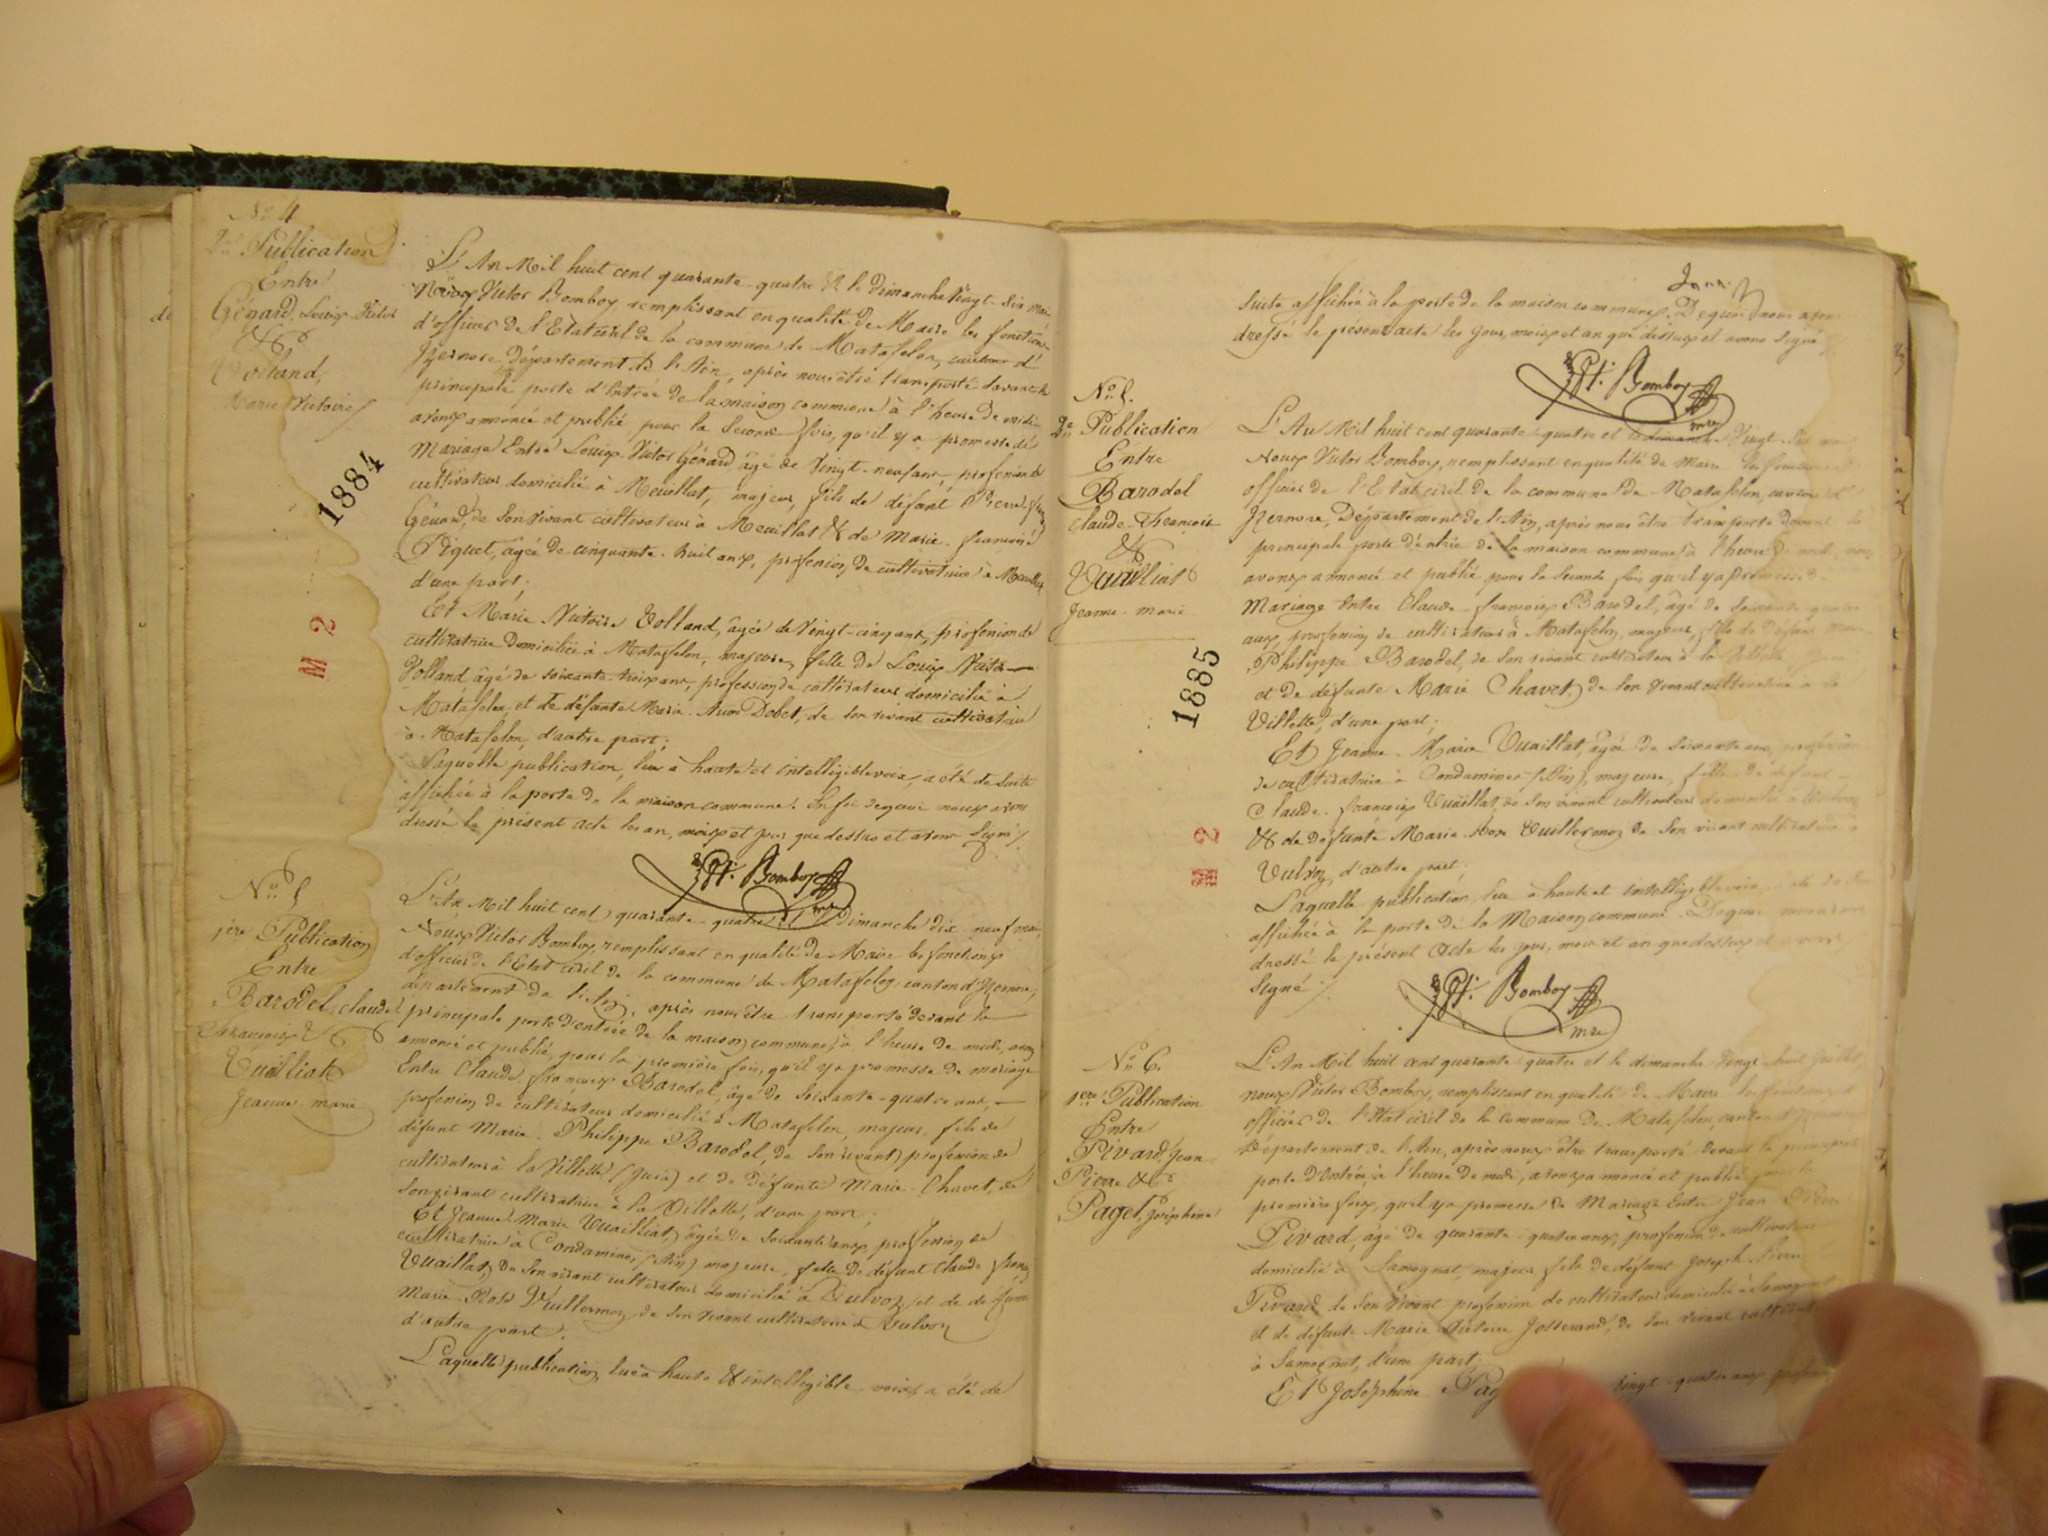 No. 4
2de Publication
Entre
Génard, Louis Victor
&
Volland,
Marie Victoire
1884
M 2
L'An Mil huit cent quarante-quatre & le dimanche vingt-six mai
Nous Victor Bomboy remplissant en qualité de Maire les fonctions
d'officier de l'Etat civil de la commune de Matafelon, canton d'
Izernore, département de l'Ain, après nous être transporté devant la
principale porte d'entrée de la maison commune à l'heure de midi
avons annoncé et publié pour la seconde fois, qu'il y a promesse de
Mariage Entre Louis Victor Génard âgé de vingt-neuf ans, profession de
cultivateur domicilié à Meuillat, majeur, fils de défunt Pierre
Génard, de son vivant cultivateur à Meuillat & de Marie-françoise
Piquet, âgée de cinquante-huit ans, profession de cultivatrice à Meuillat
d'une part;
Et Marie Victoire Volland, âgée de vingt-cinq ans, profession de
cultivatrice domiciliée à Matafelon, majeure, fille de Louis Victor
Volland âgé de soixante-trois ans, profession de cultivateur domicilié à
Matafelon, et de défunte Marie Dobet, de son vivant cultivatrice
à Matafelon, d'autre part;
Laquelle publication, lue à haute et intelligible voix, a été de suite
affichée à la porte de la maison commune. En foi de quoi nous avons
dressé le présent acte les an, mois et jour que dessus et avons signé ./.
Bomboy
mre
No. 5
1ère Publication
Entre
Barodel, claude
françois &
Vuailliat
Jeanne-marie
L'An Mil huit cent quarante-quatre & le dimanche dix-neuf mai,
Nous Victor Bomboy remplissant en qualité de Maire les fonctions
d'officier de l'Etat civil de la commune de Matafelon canton d'Izernore,
département de l'Ain, après nous être transporté devant la
principale porte d'entrée de la maison commune, à l'heure de midi, avons
annoncé et publié, pour la première fois, qu'il y a promesse de mariage
Entre Claude françois Barodel, âgé de soixante-quatre ans,
profession de cultivateur domicilié à Matafelon, majeur, fils de
défunt Marie-Philippe Barodel, de son vivant profession de
cultivateur à la Villette (Jura) et de défunte Marie Chavet, de
son vivant cultivatrice à la Villette, d'une part;
Et Jeanne Marie Vuailliat, âgée de soixante ans, profession de
cultivatrice à Condamine, (Ain) majeure, fille de défunt Claude françois
Vuaillat, de son vivant cultivateur domicilié à Vulvoz, et de défunte
Marie-Rose Vuillermoz, de son vivant cultivatrice à Vulvoz
d'autre part.
Laquelle publication, lue à haute & intelligible voix, a été de
suite affichée à la porte de la maison commune. De quoi nous avons
dressé le présent acte les jour, mois et an que dessus et avons signé
Bomboy
mre
No. 5.
2de Publication
Entre
Barodel
claude-françois
&
Vuailliat
Jeanne-marie
1885
M 2
L'An Mil huit cent quarante-quatre et le dimanche vingt-six mai
Nous Victor Bomboy, remplissant en qualité de Maire les fonctions
officier de l'Etat civil de la commune de Matafelon, canton d'
Izernore, Département de l'Ain, après nous être transporté devant la
principale porte d'entrée de la maison commune à l'heure de midi, nous
avons annoncé et publié pour la seconde fois qu'il y a promesse de
Mariage Entre Claude-françois Barodel, âgé de soixante-quatre
ans, profession de cultivateur à Matafelon, majeur, fils de défunt Marie
Philippe Barodel, de son vivant cultivateur à la Villette, Jura
et de défunte Marie Chavet, de son vivant cultivatrice à la
Villette, d'une part;
Et Jeanne-Marie Vuaillat, âgée de soixante ans, profession
de cultivatrice à Condamine (Ain), majeure, fille de défunt
Claude-françois Vuaillat, de son vivant cultivateur domicilié à Vulvoz
& de défunte Marie-Rose Vuillermoz de son vivant cultivatrice à
Vulvoz, d'autre part;
Laquelle publication, lue à haute et intelligible voix, a été de suite
affichée à la porte de la Maison commune. De quoi nous avons
dressé le présent acte les jour, mois et an que dessus et avons
Signé ./.
Bomboy
mre
No. 6.
1ère Publication
Entre
Pivard, Jean
Pierre &
Paget, Joséphine
L'An Mil huit cent quarante-quatre et le dimanche vingt-huit Juillet
nous Victor Bomboy, remplissant en qualité de Maire les fonctions
officier de l'Etat civil de la commune de Matafelon, canton
Département de l'Ain, après nous être transporté devant la principale
porte d'Entrée, à l'heure de midi, avons annoncé et publié pour la
première fois, qu'il y a promesse de Mariage Entre Jean Pierre
Pivard, âgé de quarante-quatre ans, profession de cultivateur
domicilié à Samognat, majeur fils de défunt Joseph Pierre
Pivard de son vivant profession de cultivateur domicilié à Samognat
et de défunte Marie Victoire Josserand, de son vivant cultivatrice
à Samognat, d'une part;
Et Joséphine Pag vingt-quatre ans, profession